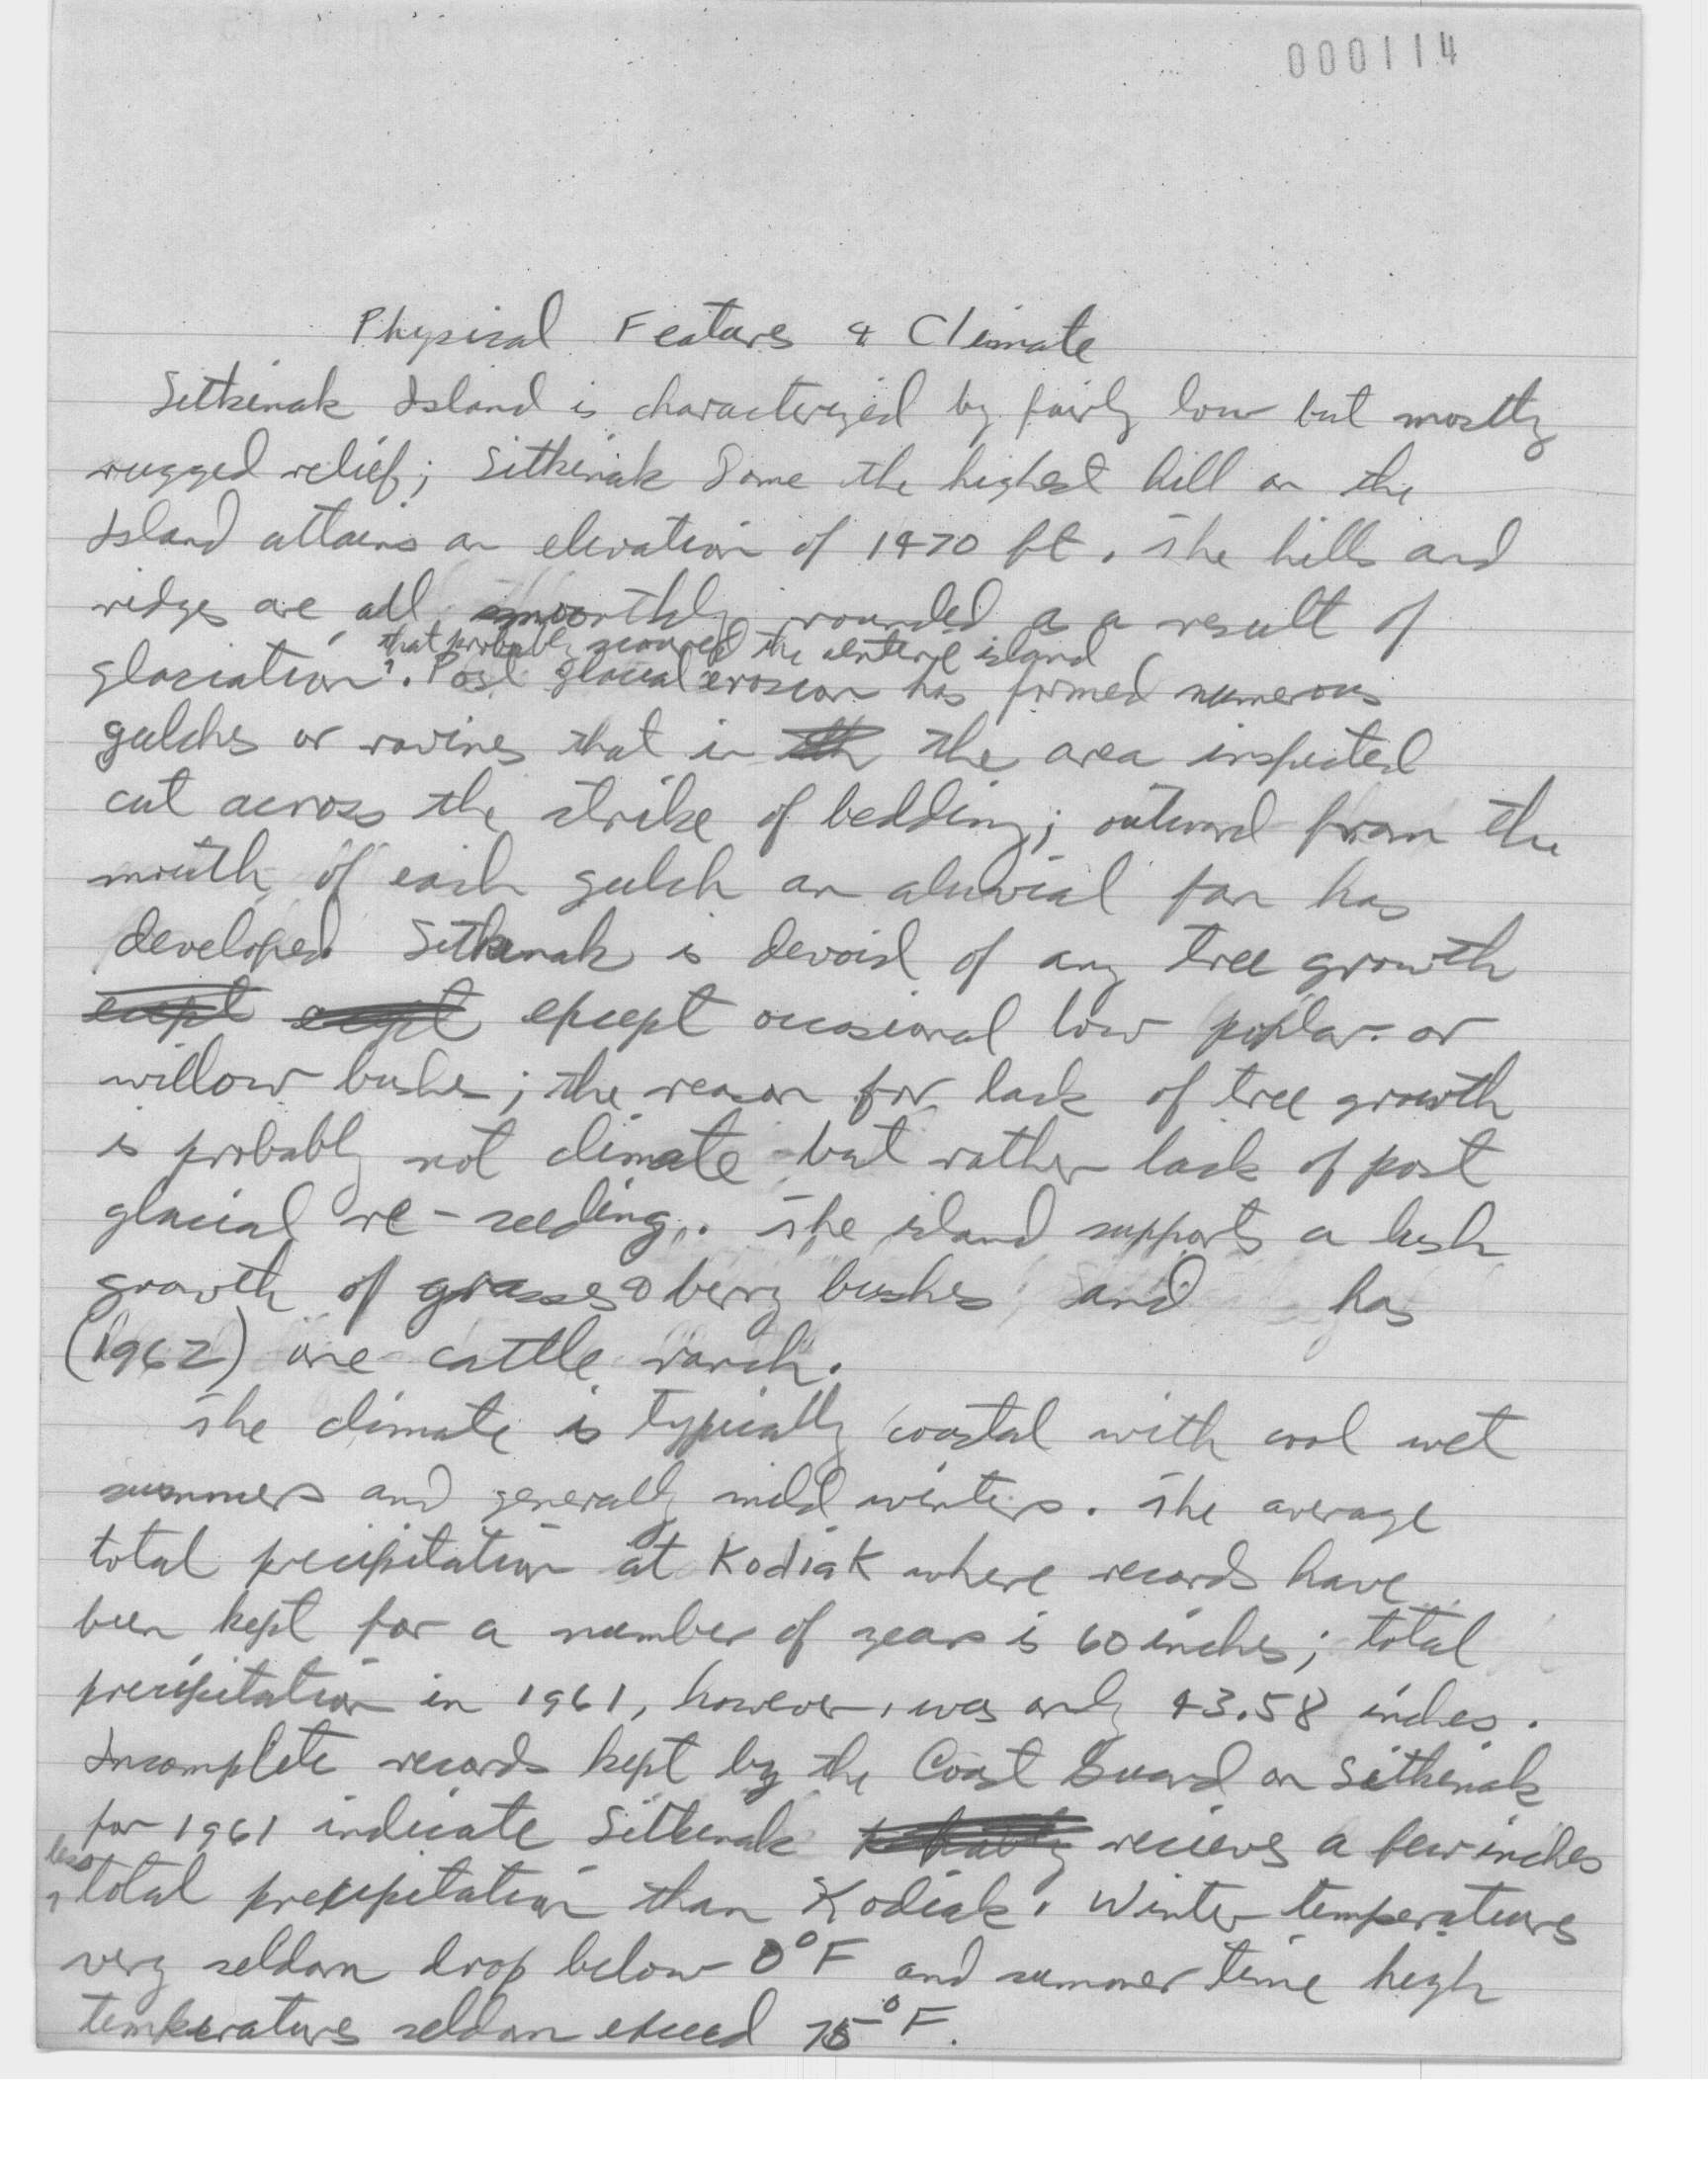 000114
Physical Features & Climate
Sitkinak Island is characterized by fairly low but mostly
rugged relief; Sitkinak Dome the highest hill on the
Island attains an elevation of 1470 ft. The hills and
ridges are all smoothly rounded as a result of
that probably scoured the entire island
glaciation. Post glacial erosion has formed numerous
gulches or ravines that in the area inspected
cut across the strike of bedding; outward from the
mouth of each gulch an aluvial fan has
developed Sitkinak is devoid of any tree growth
except except except occasional low poplar or
willow bushes; the reason for lack of tree growth
is probably not climate but rather lack of post
glacial re-seeding. The island supports a lush
growth of grasses & berry bushes and has
(1962) one cattle ranch.
The climate is typically coastal with cool wet
summers and generally mild winters. The average
total precipitation at Kodiak where records have
been kept for a number of years is 60 inches; total
precipitation in 1961, however, was only 43.58 inches.
Incomplete records kept by the Coast Guard on Sitkinak
for 1961 indicate Sitkinak recieves a few inches
less
total precipitation than Kodiak. Winter temperatures
very seldom drop below 0°F and summer time high
temperatures seldom exceed 75°F.